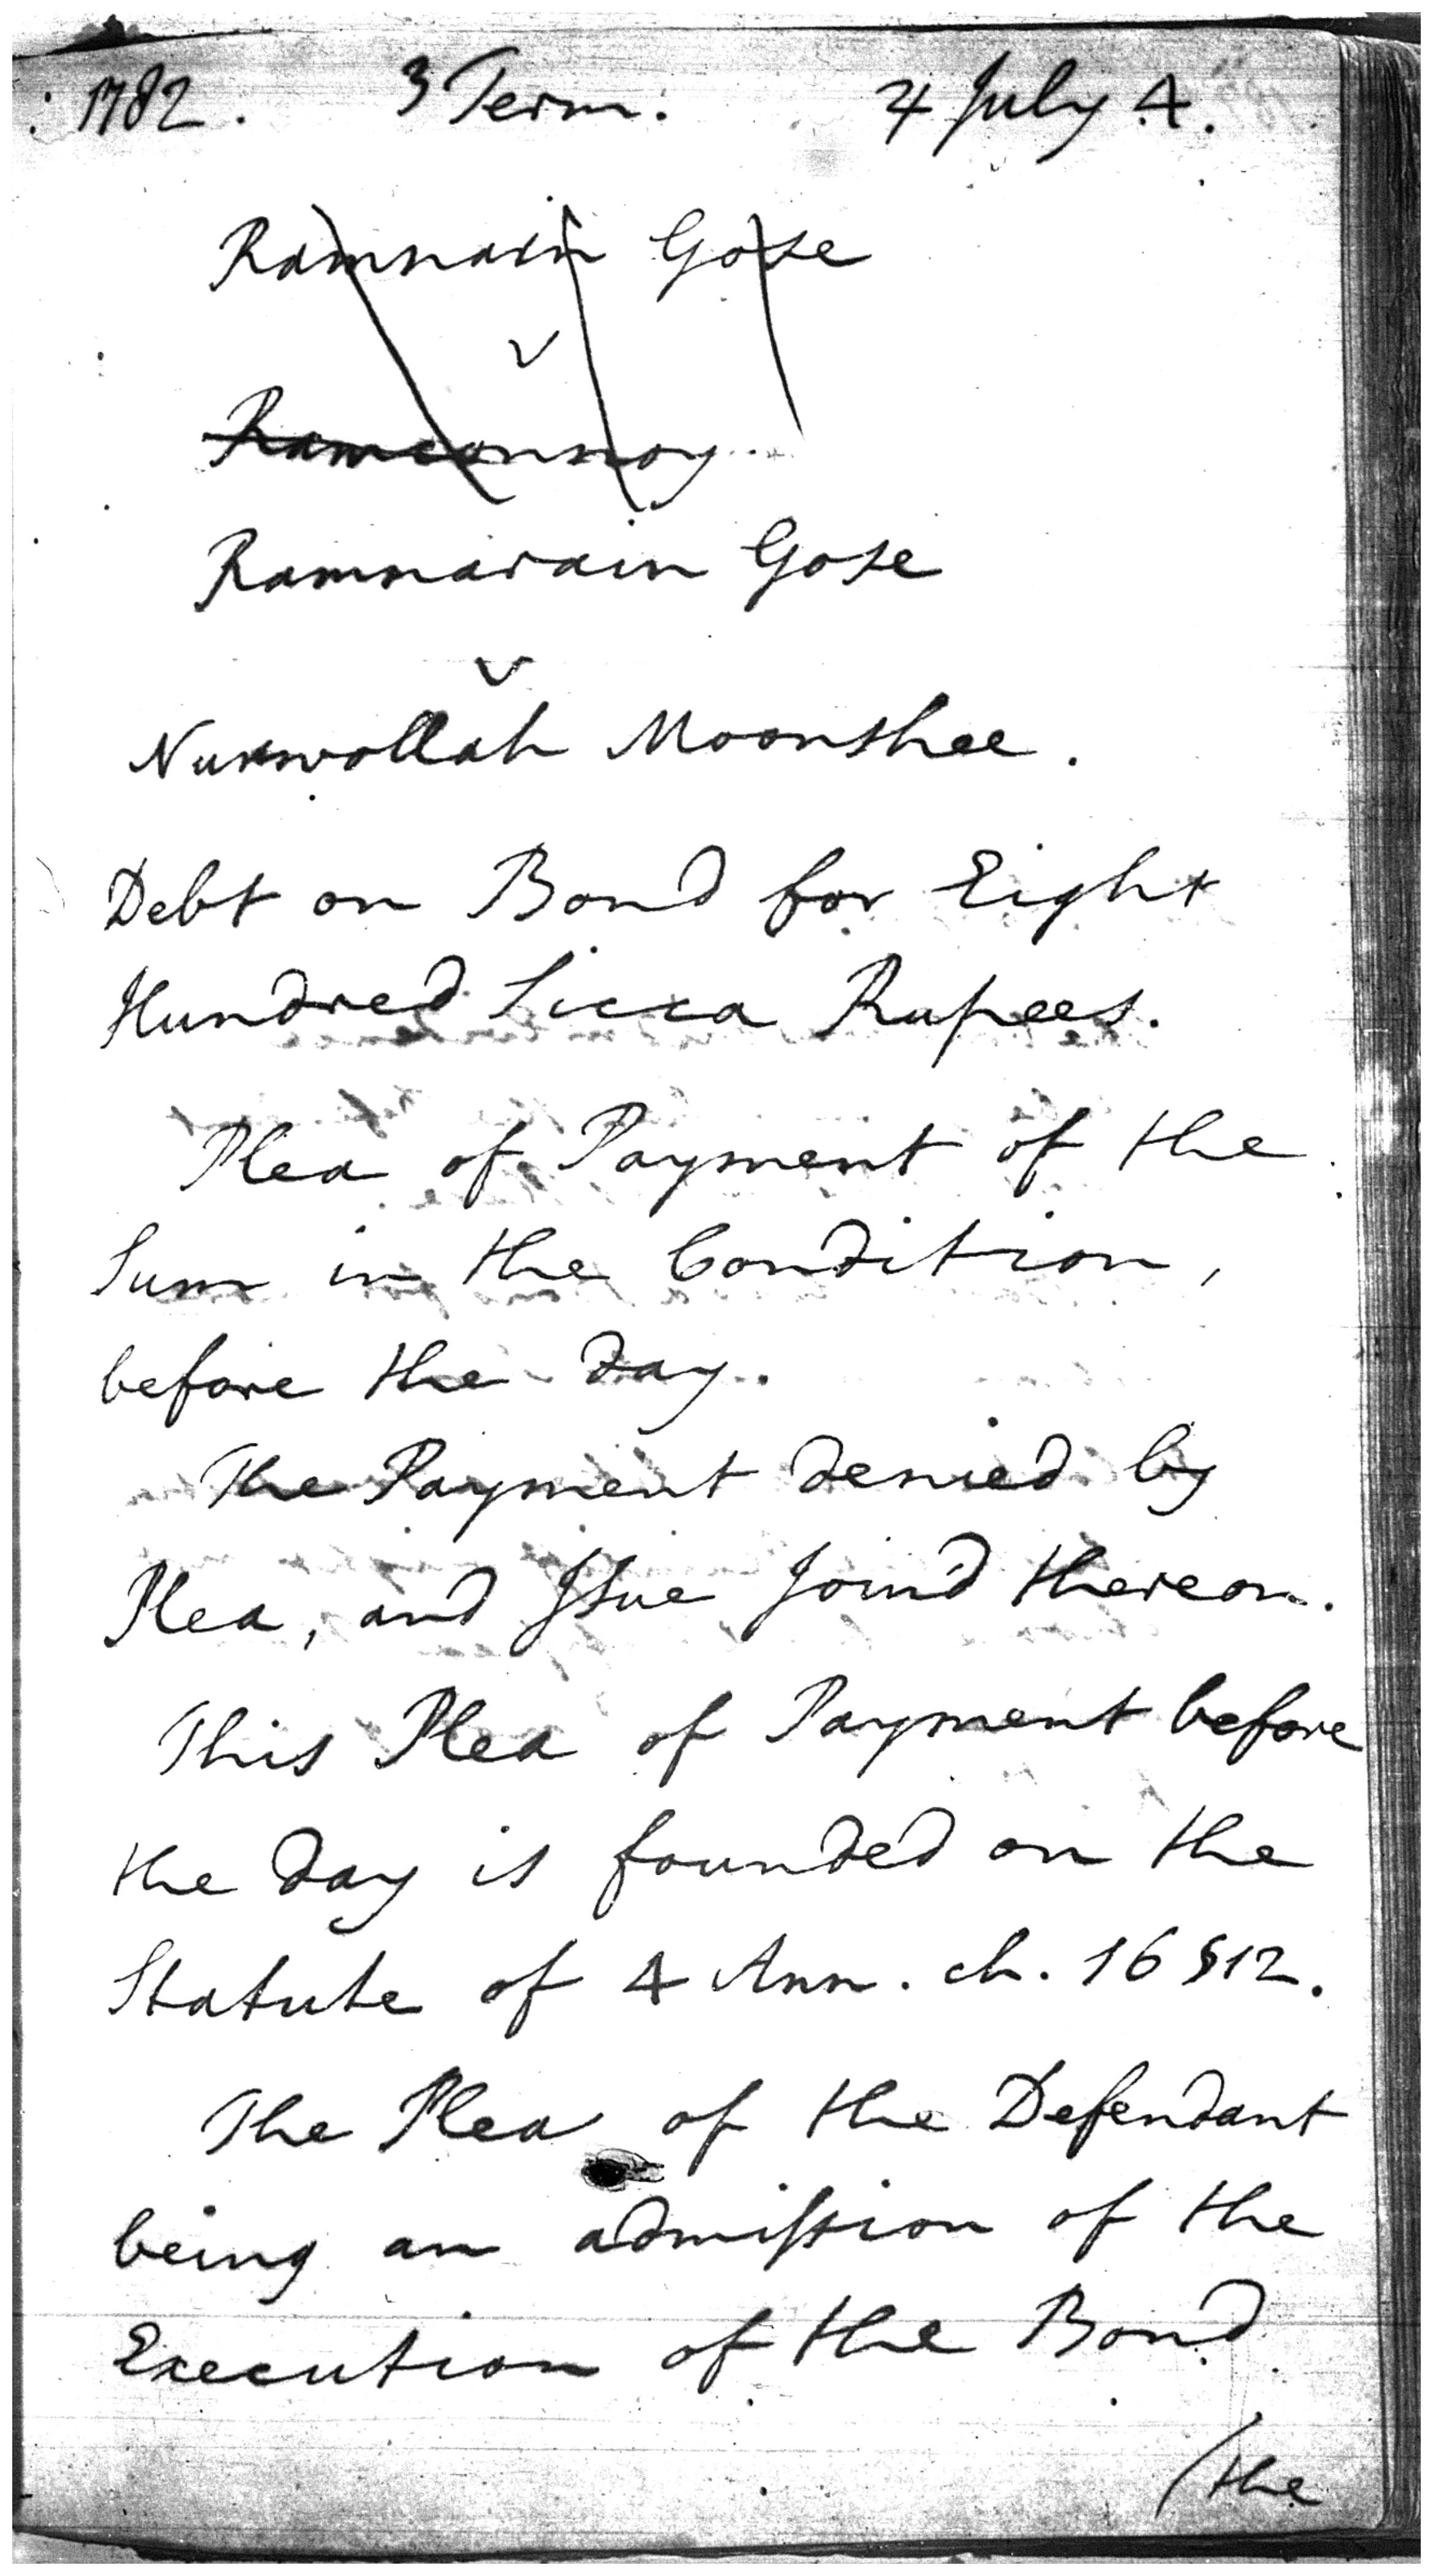 1782. 3 Term. 4 July 4.
Ramnain Gose
v
Ramconnoy.
Ramnarain Gose
v
Moonshee.
Debt on Bond for Eight
Hundred Sicca Rupees.
Plea of Payment of the
Sum in the Condition,
before the day.
The Payment denied by
Plea, and Issue Join'd thereon.
This Plea of Payment before
the day is founded on the
Statute of 4 Ann. ch. 16 §12.
The Plea of the Defendant
being an admission of the
Execution of the Bond
(the